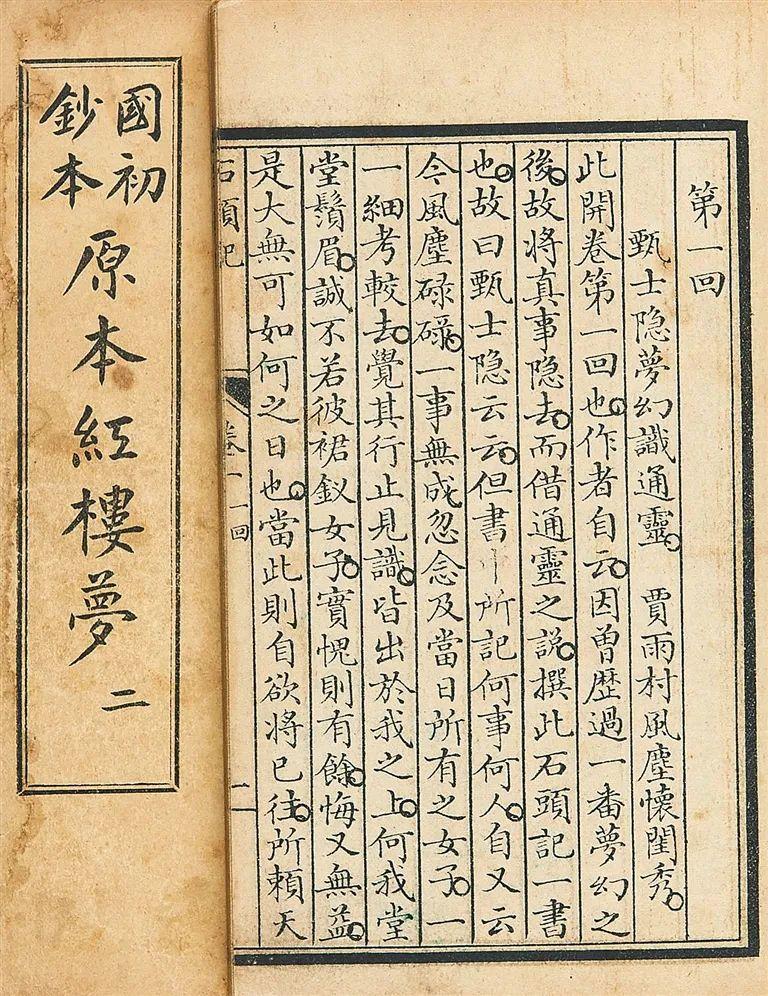 國初
鈔本
原本紅樓夢 二
第一回
甄士隐夢幻識通靈。 賈雨村風塵懷閨秀。
此開卷第一回也。作者自云。因曽歷過一番夢幻之
後。故將真事隐去。而借通靈之說。撰此石頭記一書
也。故曰甄士隐云云。但書中所記何事何人。自又云
今風塵碌碌。一事無成。忽念及當日所有之女子。一
一細考較去。覺其行止見識。皆出於我之上。何我堂
堂鬚眉。誠不若彼裙釵女子。實愧則有餘。悔又無益。
是大無可如何之日也。當此則自欲將已往。所賴天
石頭記 卷一 一回 二